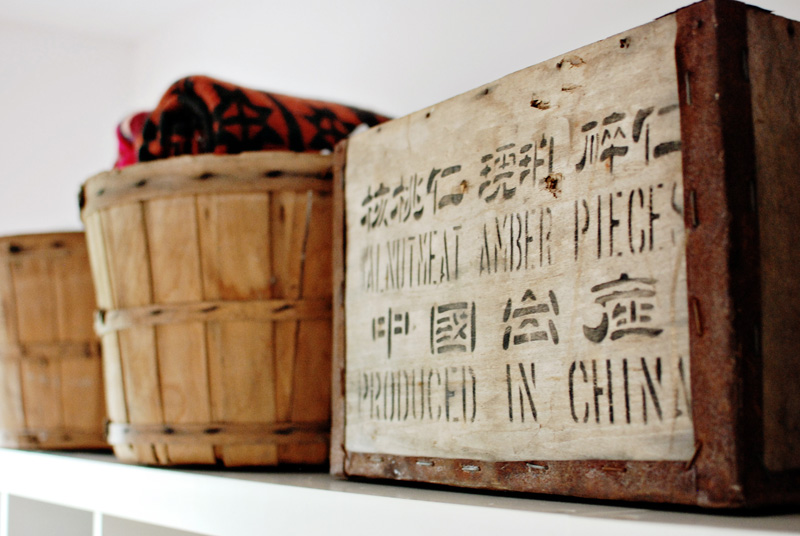 核桃仁 琥珀 碎仁
WALNUTMEAT AMBER PIECES
中國出產
PRODUCED IN CHINA